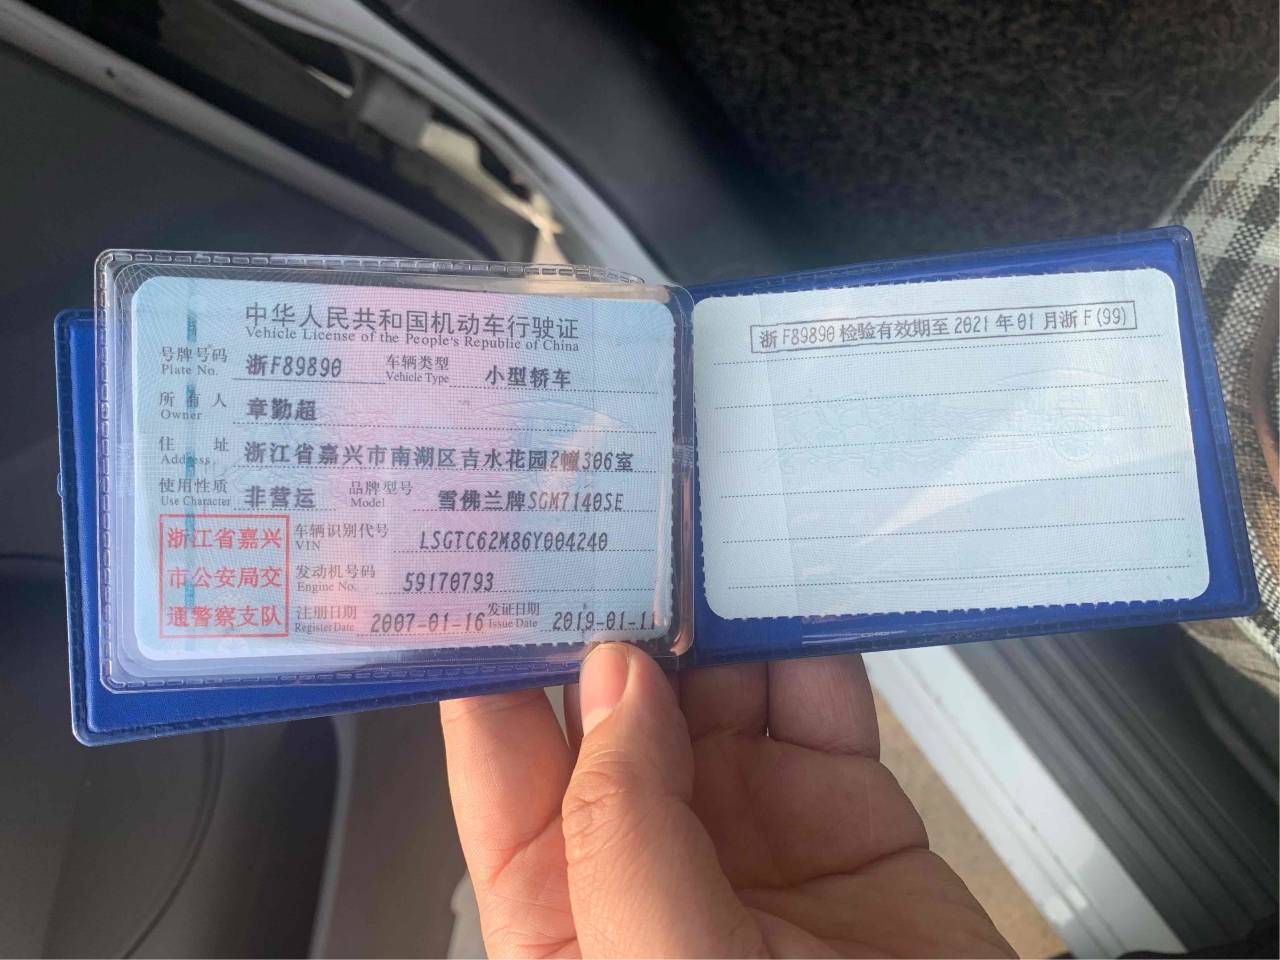 中华人民共和国机动车行驶证
Vehicle License of the People's Republic of China
号牌号码 浙F89890 车辆类型 小型轿车
Plate No. Vehicle Type
所有人 章勤超
Owner
住址 浙江省嘉兴市南湖区吉水花园2幢306室
Address
使用性质 非营运 品牌型号 雪佛兰牌SGM7140SE
Use Character Model
浙江省嘉兴
市公安局交
通警察支队
车辆识别代号 LSGTC62M86Y004240
VIN
发动机号码 59170793
Engine No.
注册日期 2007-01-16 发证日期 2019-01-11
Register Date Issue Date
浙F89890检验有效期至2021年01月浙F(99)